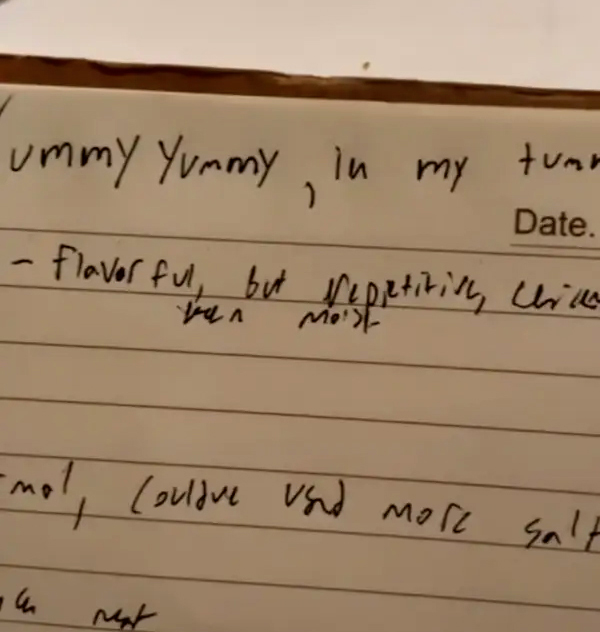 Yummy Yummy, in my tumm
Date.
- flavorful, but repetitive,
been moist
couldve used more salt
next